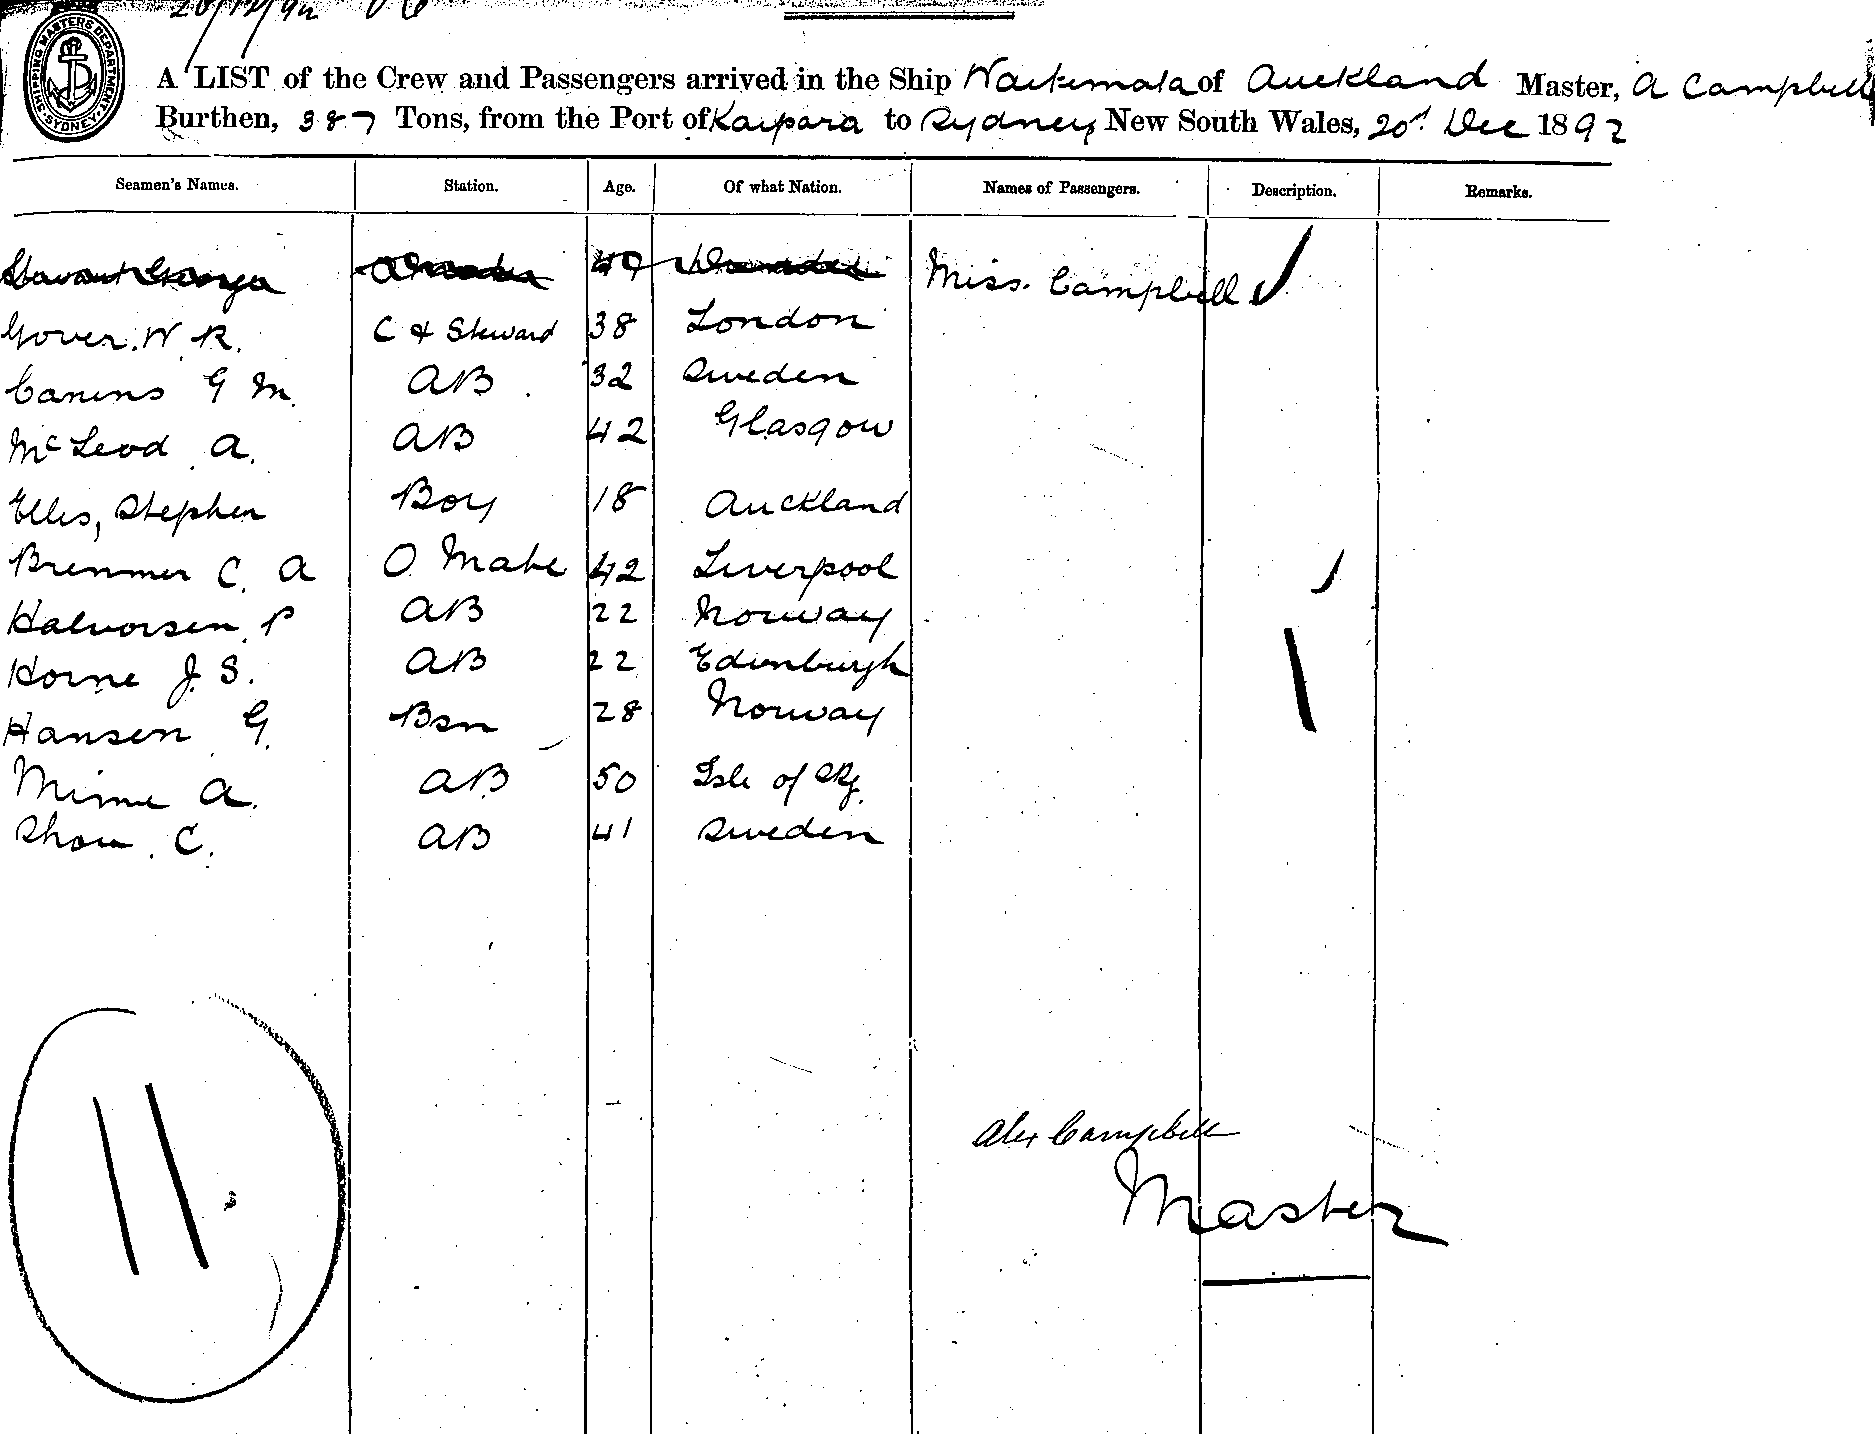 20/12/92
SHIPPING MASTERS DEPARTMENT SYDNEY
A LIST of the Crew and Passengers arrived in the Ship Waitemata of Auckland Master, A Campbell
Burthen, 387 Tons, from the Port of Kaipara to Sydney, New South Wales, 20th Dec 1892
Seamen's Names. Station. Age. Of what Nation. Names of Passengers. Description. Remarks.
49 Miss. Campbell
Gover. W. R. C & Steward 38 London
G M. AB 32 Sweden
McLeod A. AB 42 Glasgow
Ellis, Stephen Boy 18 Auckland
Bremmer C. A O. Mate 42 Liverpool
Halvorsen P AB 22 Norway
Horne J. S. AB 22 Edinburgh
Hansen G. Bsn 28 Norway
A. AB 50 Isle of
C. AB 41 Sweden
11
Alex Campbell
Master